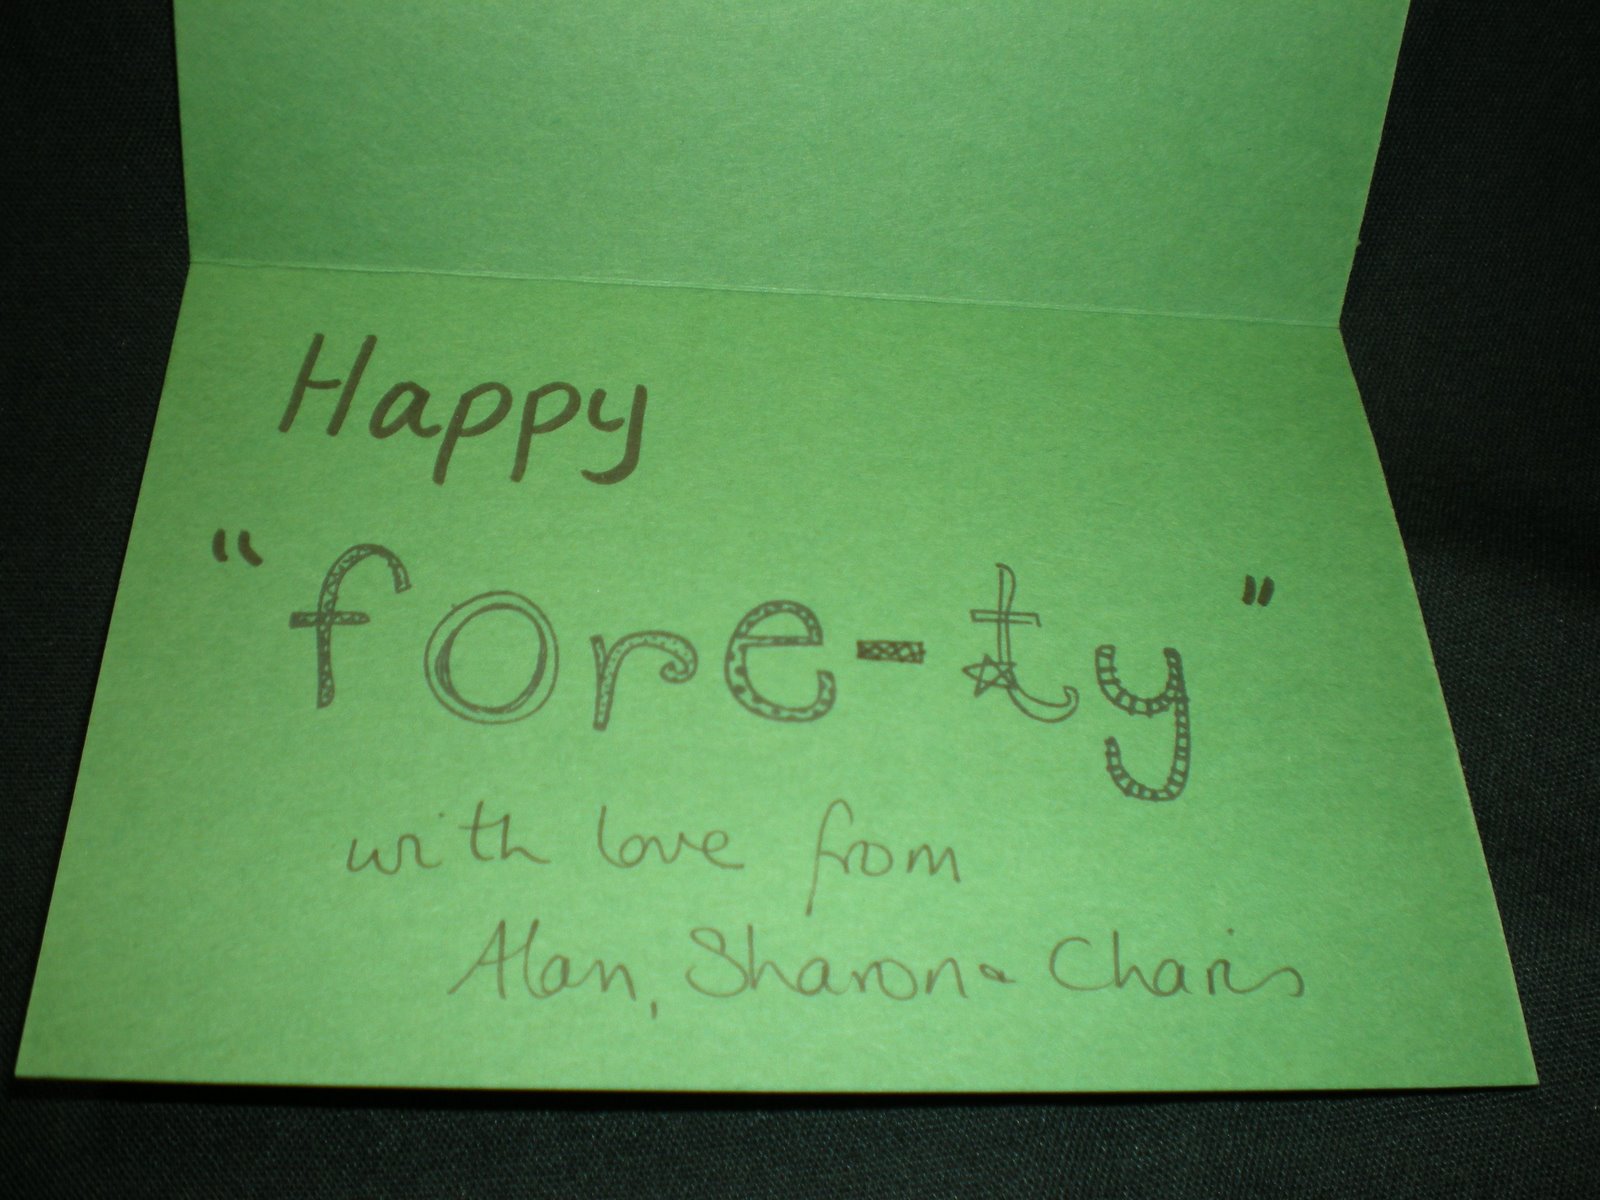 Happy
"fore-ty"
with love from
Alan, Sharon & Charis